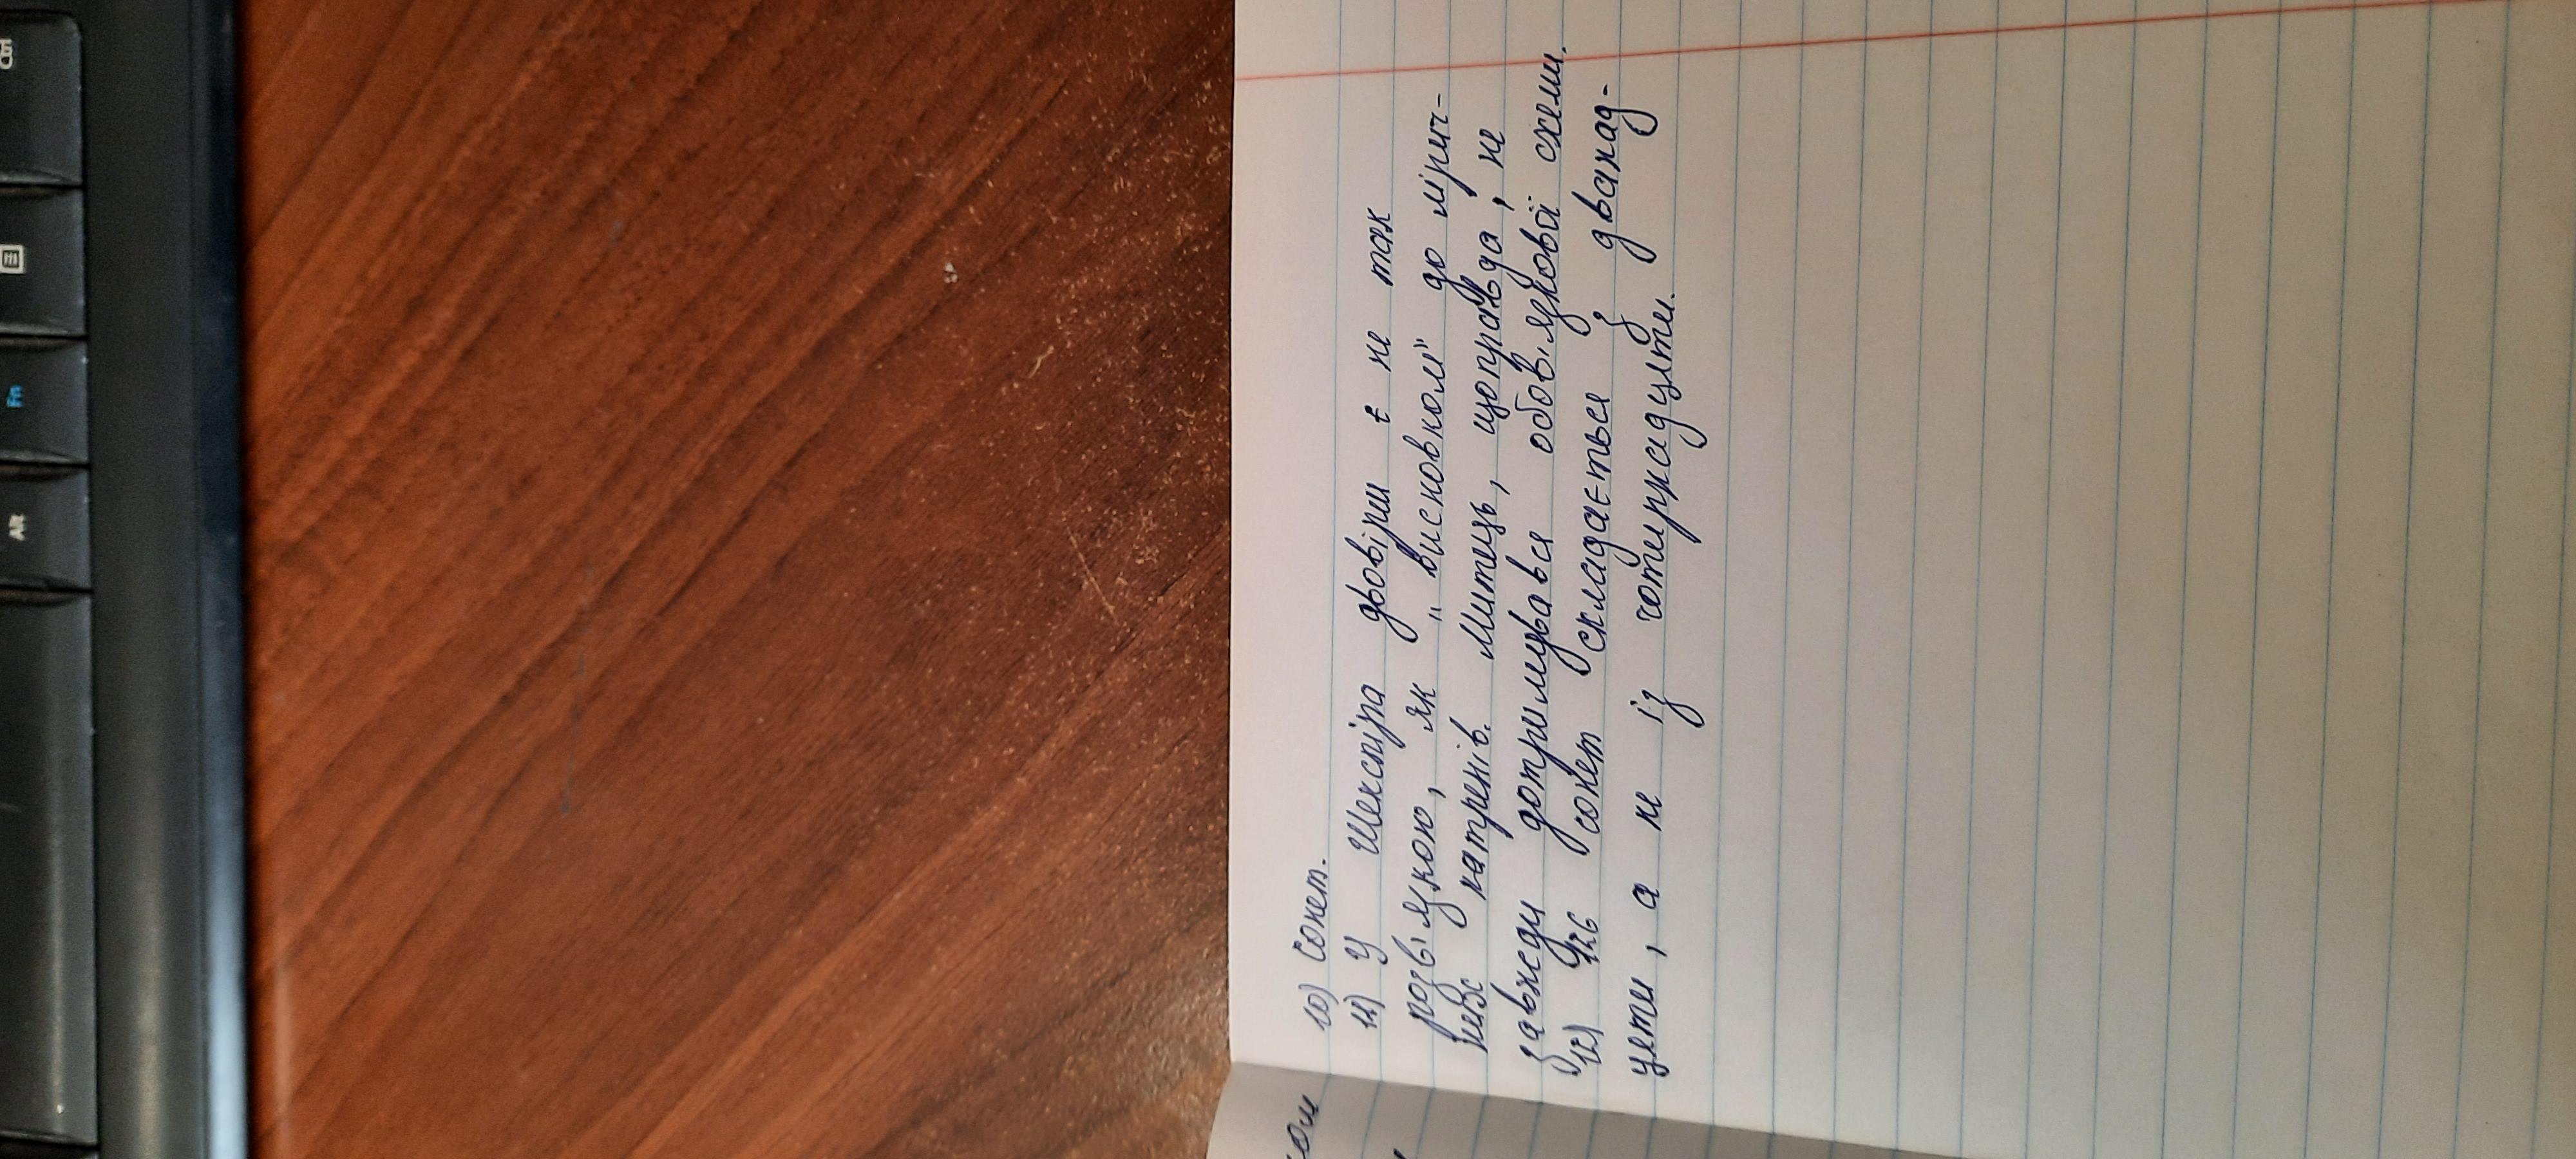 10) Сонет.
11) У Шекспіра двовірш є не так
розв'язкою, як "висновком" до лірич-
них катренів. Митець, щоправда, не
завжди дотримувався обов'язкової схеми.
12) 126 сонет складається з дванад-
цяти, а не із чотирнадцяти.
ком
Ctrl
Fn
Alt